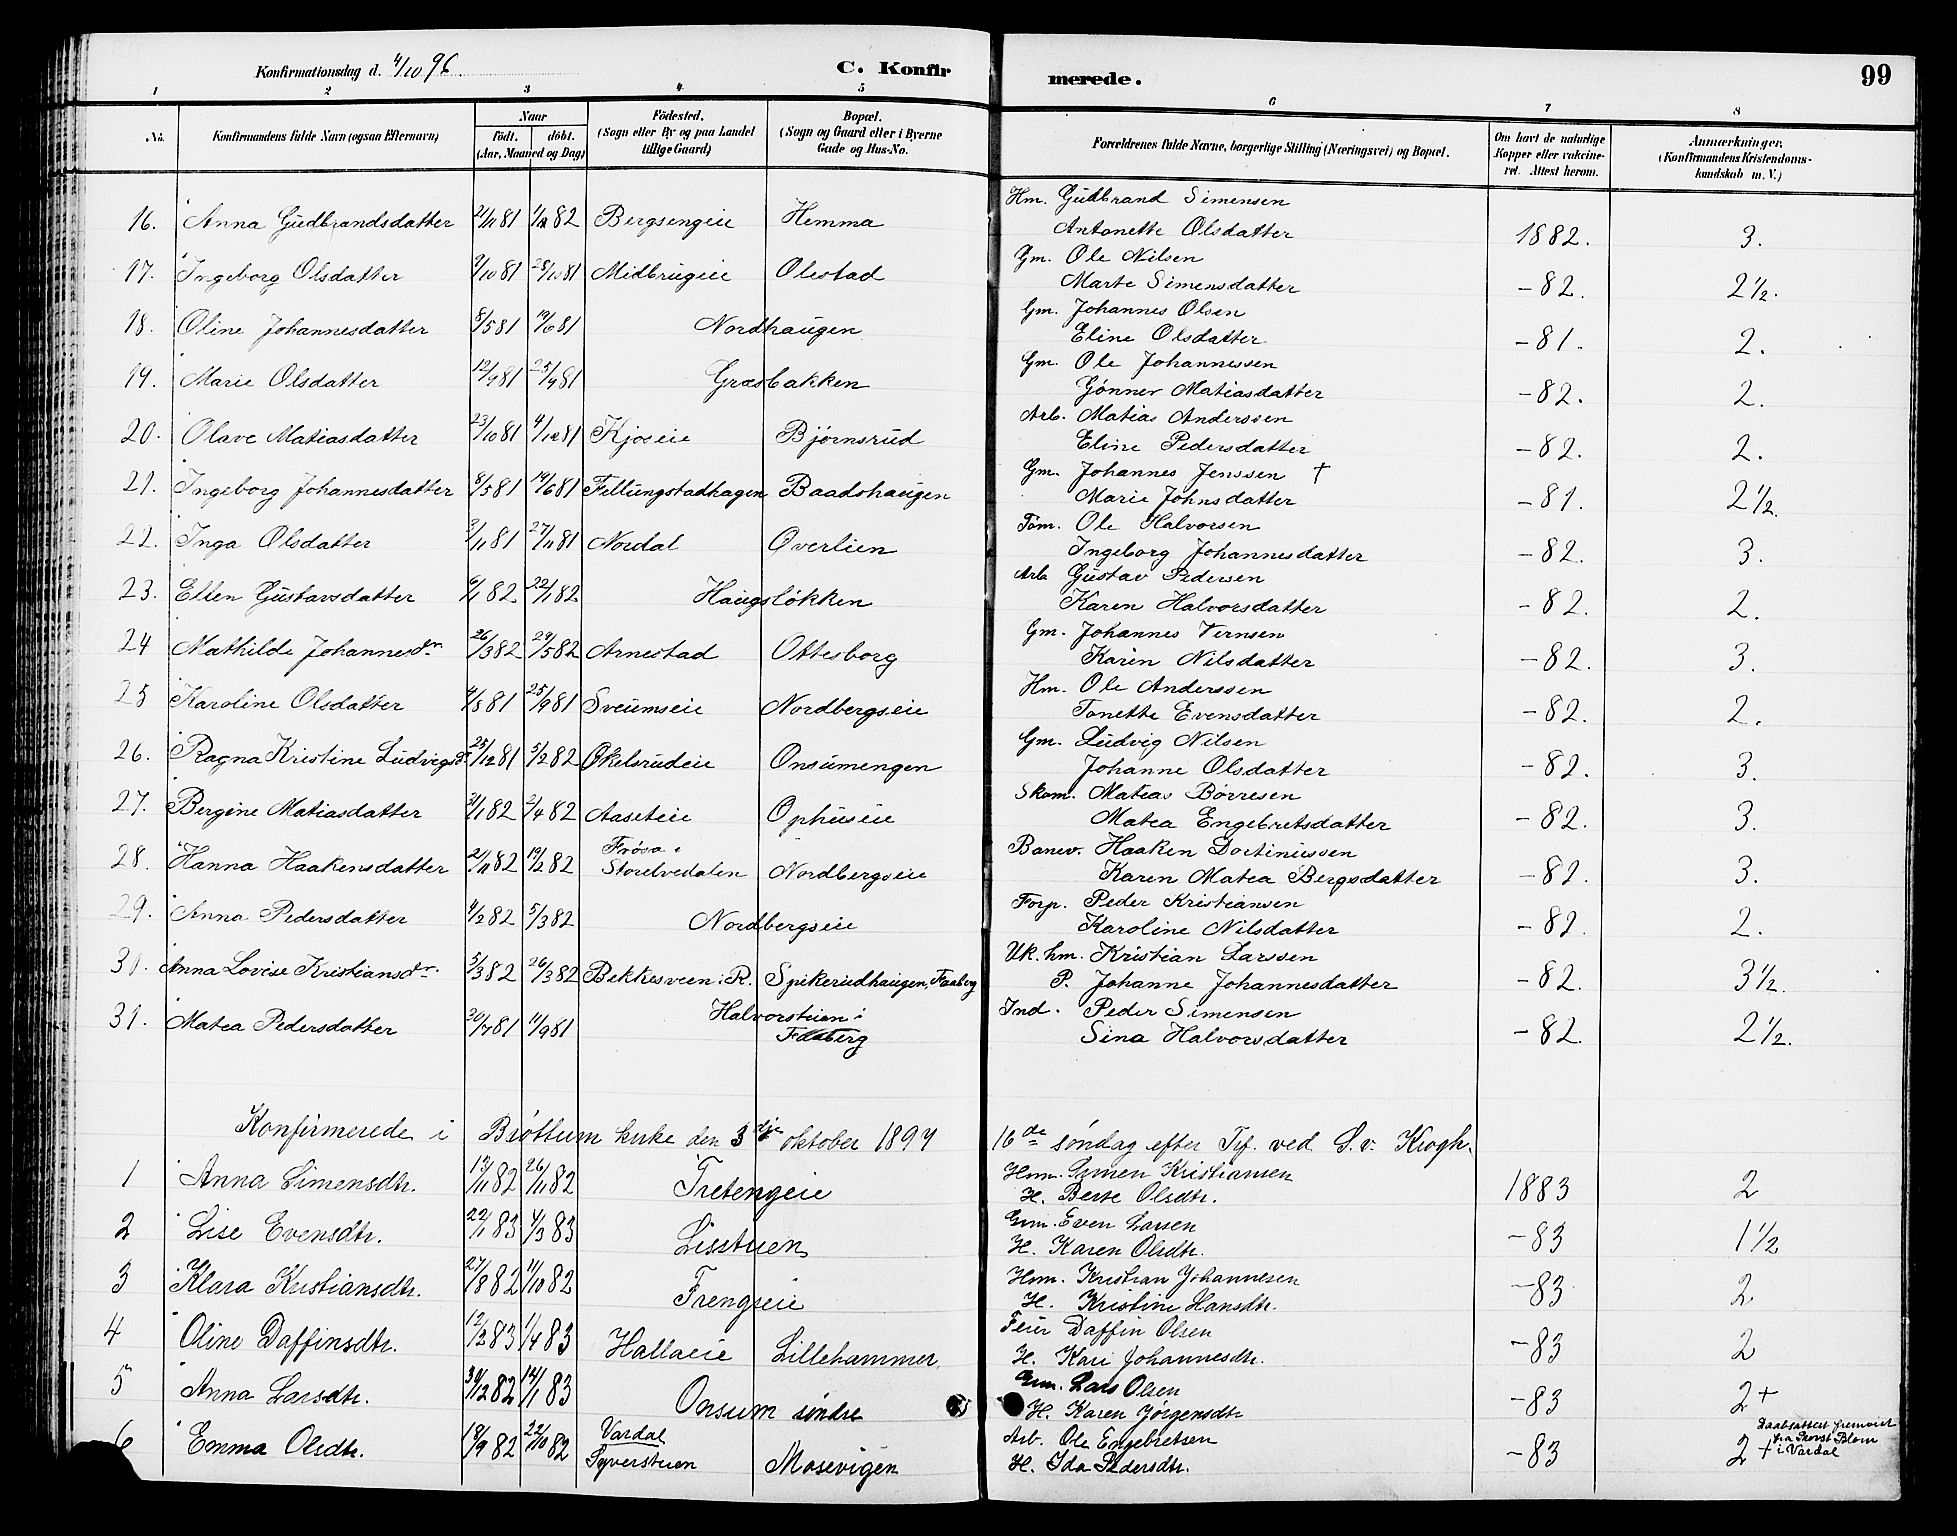 Konfirmationsdag d. 4/10 96. C. Konfirmerede. 99
1 2 3 4 5 6 7 8
No. Konfirmandens fulde Navn (ogsaa Efternavn) Naar födt. döbt. (Aar, Maaned og Dag) Födested. (Sogn eller By og paa Landet tillige Gaard) Bopæl. (Sogn og Gaard eller i Byerne Gade og Hus-No. Forældrenes fulde Navne, borgerlige Stilling (Næringsvei) og Bopæl. Om havt de naturlige Kopper eller vakcineret. Attest herom. Anmærkninger. (Konfirmandens Kristendomskundskab m. V.)
16. Anna Gudbrandsdatter 21/11 81 1/12 82 Bergsengeie Hemma Hm. Gudbrand Simensen
Antonette Olsdatter 1882. 3.
17. Ingeborg Olsdatter 2/10 81 28/10 81 Midbrugeie Olestad Gm. Ole Nilsen
Marte Simensdatter -82. 2 1/2.
18. Oline Johannesdatter 8/5 81 19/6 81 Nordhaugen Gm. Johannes Olsen
Eline Olsdatter -81. 2.
19. Marie Olsdatter 12/9 81 25/9 81 Græsbakken Gm. Ole Johannessen
Gønner Matiasdatter -82. 2.
20. Olave Matiasdatter 23/10 81 4/12 81 Kjoseie Bjørnsrud Arb. Matias Anderssen
Eline Pedersdatter -82. 2.
21. Ingeborg Johannesdatter 8/5 81 19/6 81 Fellungstadhagen Baadshaugen Gm. Johannes Jenssen †
Marie Johnsdatter -81. 2 1/2.
22. Inga Olsdatter 3/11 81 27/11 81 Nordal Overlien Tøm. Ole Halvorsen
Ingeborg Johannesdatter -82. 3.
23. Ellen Gustavsdatter 6/1 82 22/1 82 Haugsløkken Arb. Gustav Pedersen
Karen Halvorsdatter -82. 2.
24 Mathilde Johannesdr. 26/3 82 29/5 82 Arnestad Ottesborg Gm. Johannes Iversen
Karen Nilsdatter -82. 3.
25 Karoline Olsdatter 4/8 81 25/9 81 Sveumseie Nordbergseie Hm. Ole Anderssen
Tonette Evensdatter -82. 2.
26. Ragna Kristine Ludvigsdr 25/12 81 5/2 82 Økelsrudeie Onsumengen Gm. Ludvig Nilsen
Johanne Olsdatter -82. 3.
27. Bergine Matiasdatter 31/1 82 2/4 82 Aaseteie Ophuseie Skom. Matias Børresen
Matea Engebretsdatter -82. 3.
28. Hanna Haakensdatter 2/11 82 19/2 82 Frøsa i
Storelvedalen Nordbergseie Banev. Haaken Dortinussen
Karen Matea Bergsdatter -82. 3.
29. Anna Pedersdatter 4/2 82 5/3 82 Nordbergseie Forp. Peder Kristiansen
Karoline Nilsdatter -82. 2.
30. Anna Lovise Kristiansdr. 5/3 82 26/3 82 Bekkesveen i R. Spikerudhaugen, Faaberg Uk. hm. Kristian Larssen
P. Johanne Johannesdatter -82. 3 1/2.
31. Matea Pedersdatter 20/7 81 11/9 81 Halvorsteien i
Faaberg Ind. Peder Simensen
Sina Halvorsdatter -82. 2 1/2.
Konfirmerede i Brøttum kirke den 3dje oktober 1897 16de søndag efter Trf. ved S. v. Krogh.
1 Anna Simensdtr. 13/11 82 26/11 82 Tretengeie Hsm. Simen Kristiansen
H. Berte Olsdtr. 1883 2
2 Lise Evensdtr. 22/1 83 4/3 83 Lisstuen Gm. Even Larsen
H. Karen Olsdtr. -83 1 1/2
3 Klara Kristiansdtr. 27/8 82 11/10 82 Frengseie Hsm. Kristian Johannesen
H. Kristine Hansdtr. -83 2
4 Oline Daffinsdtr. 12/2 83 1/4 83 Hallaeie Lillehammer. Feier Daffin Olsen
H. Kari Johannesdtr. -83 2
5 Anna Larsdtr. 30/12 82 14/1 83 Onsum søndre Gm. Lars Olsen
H. Karen Jørgensdtr -83 2+
6 Emma Olsdtr. 18/9 82 22/10 82 Vardal
Syverstuen Mosevigen Arb. Ole Engebretsen
H. Ida Pedersdtr. -83 2+ Daabsattest fremvist
fra Provst Blom
i Vardal